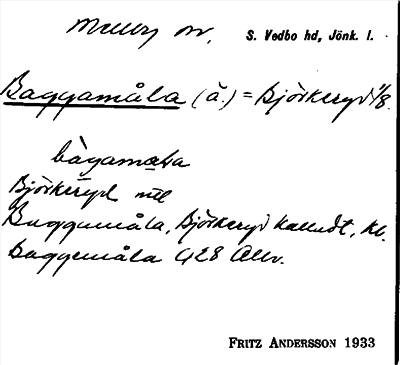 Mellby sn. S. Vedbo hd, Jönk. l.
Baggamåla (å.) = Björkeryd 1/8.
bàgamala
Björkeryd
Baggamåla, Björkeryd kalladt, kb.
Baggemåla 428 Allm.
FRITZ ANDERSSON 1933